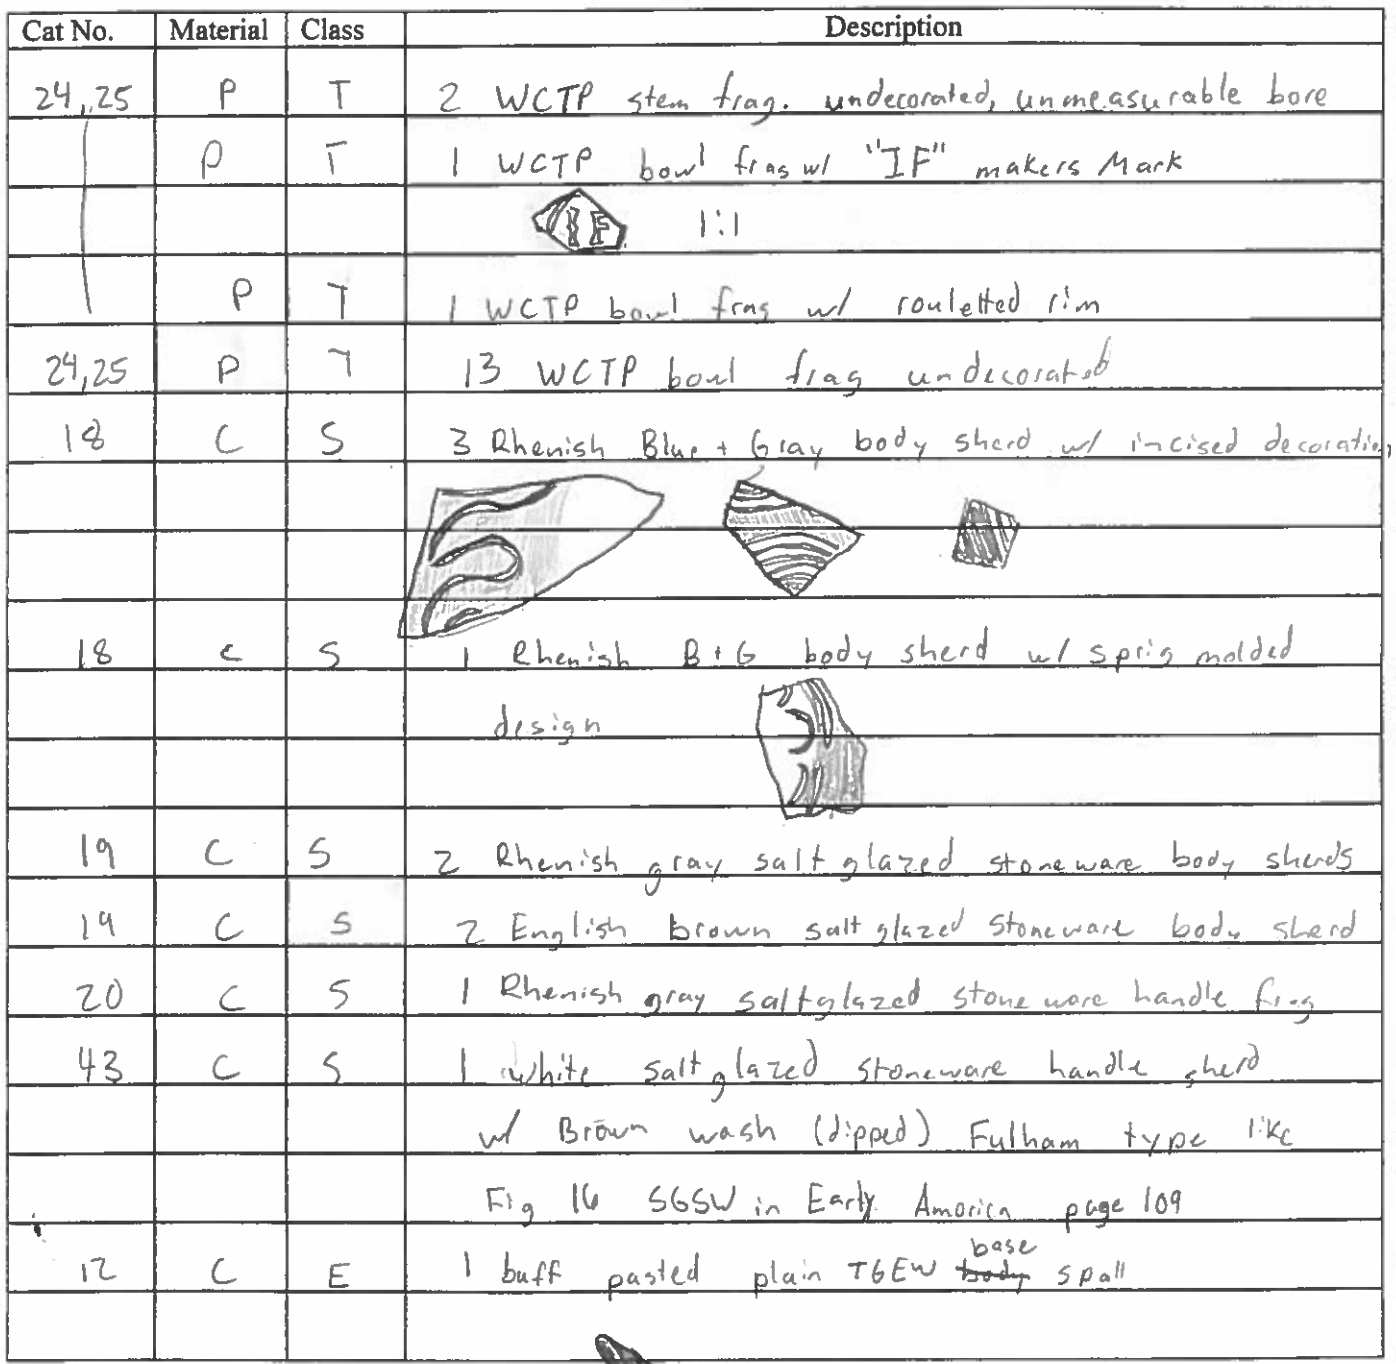 Cat No. Material Class Description
24,25 P T 2 WCTP stem frag. undecorated, unmeasurable bore
P T 1 WCTP bowl frag w/ "IF" makers Mark
IF 1:1
P T 1 WCTP bowl frag w/ rouletted rim
24,25 P T 13 WCTP bowl frag undecorated
18 C S 3 Rhenish Blue + Gray body sherd w/ incised decoration
18 C S 1 Rhenish B+G body sherd w/ sprig molded
design
19 C S 2 Rhenish gray salt glazed stoneware body sherds
19 C S 2 English brown salt glazed stoneware body sherd
20 C S 1 Rhenish gray saltglazed stoneware handle frag
43 C S 1 white salt glazed stoneware handle sherd
w/ Brown wash (dipped) Fulham type like
Fig 16 SGSW in Early America page 109
12 C E 1 buff pasted plain TGEW body base spall